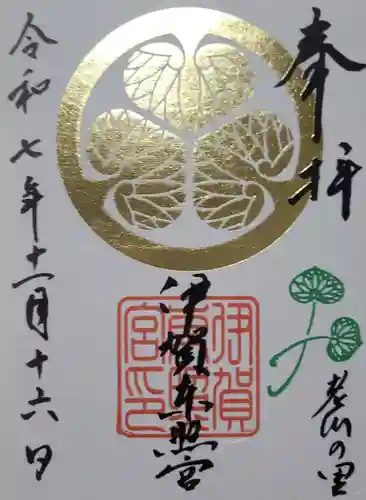 奉拝
伊賀東照宮
伊賀東照宮印
令和七年十一月十六日